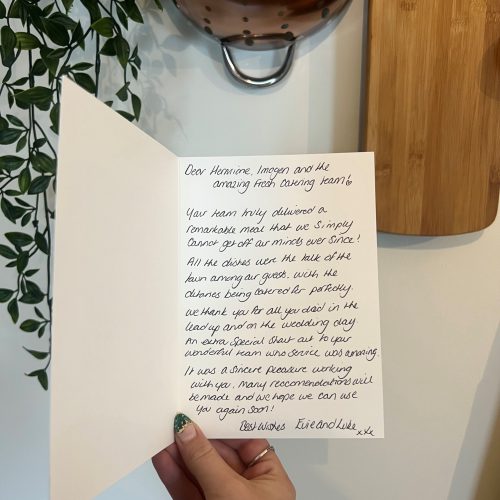 Dear Hermione, Imogen and the
amazing Fresh Catering team
Your team truly delivered a
remarkable meal that we simply
cannot get off our minds ever since!
All the dishes were the talk of the
town among our guest. With the
detones being catered for perfectly.
We thank you for all you did in the
lead up and on the wedding day
An extra special shout out to your
wonderful team who service was amazing.
It was a sincere pleasure working
with you. Many reccomendations will
be made and we hope we can use
you again soon!
Best Wishes Evie and Luke xxx